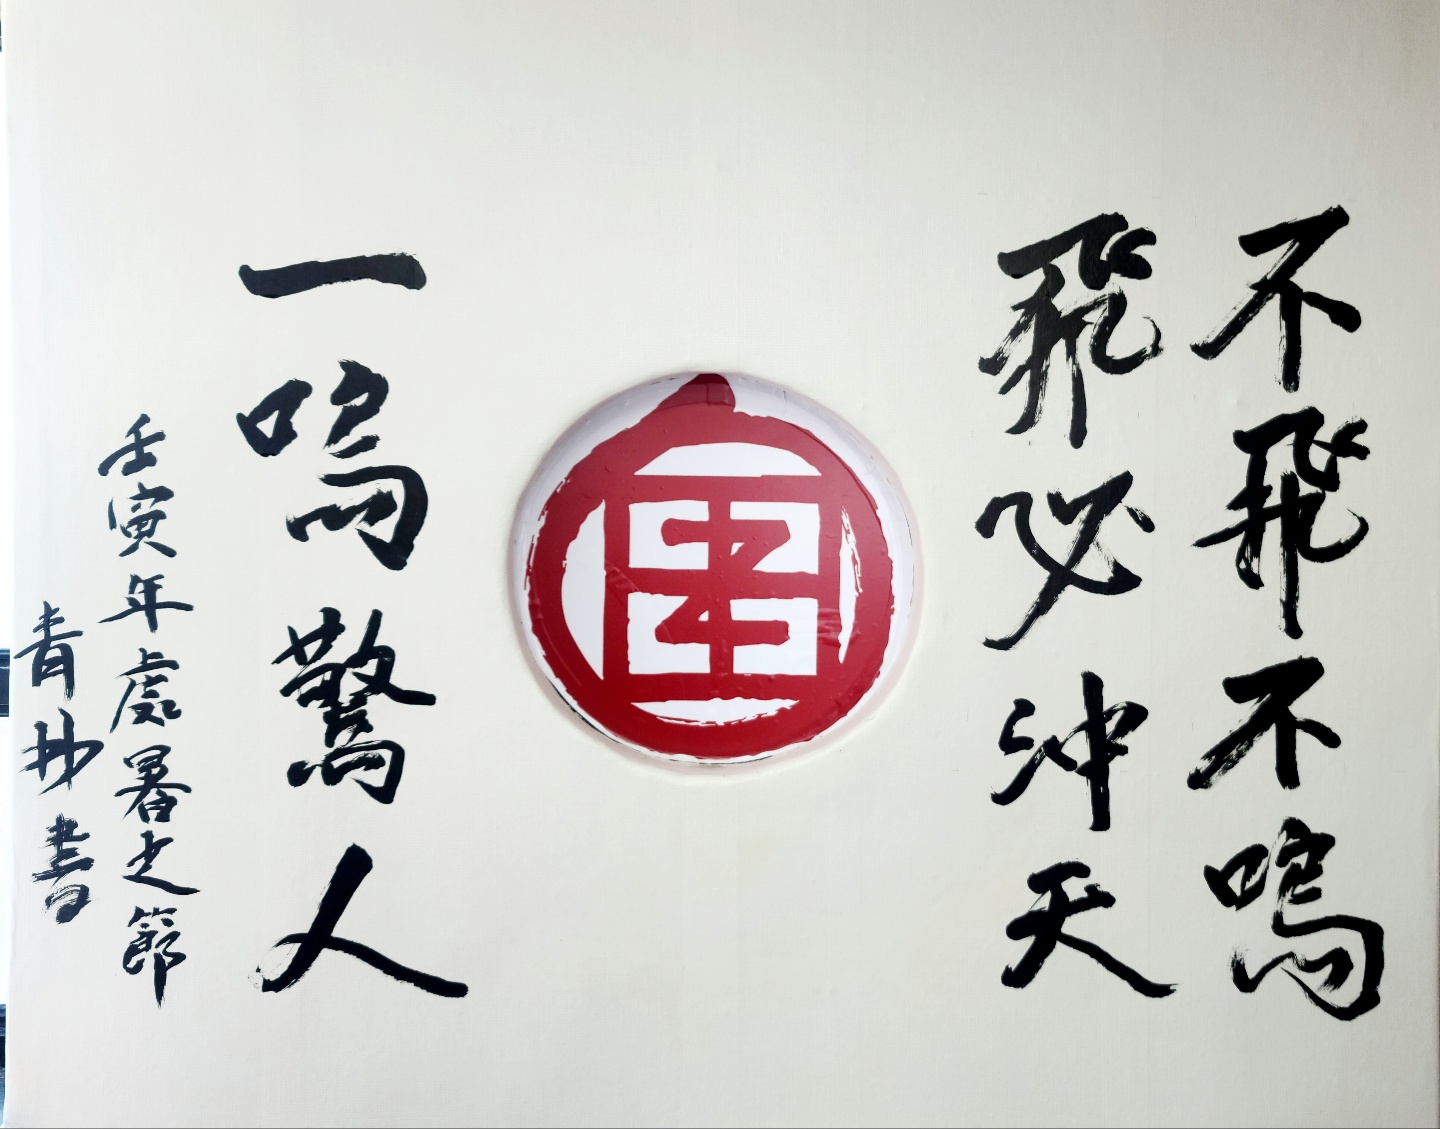 不飛不鳴
飛必沖天
一鳴驚人
壬寅年處暑之節
青抄書